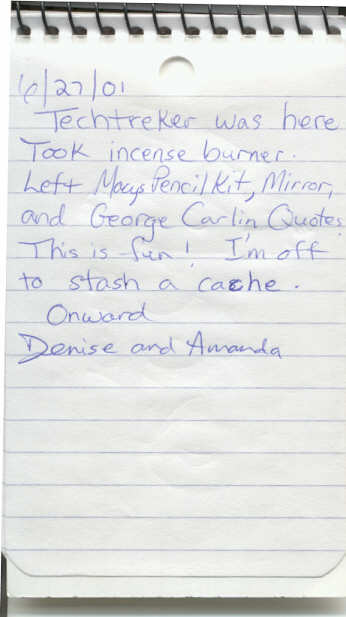 6/27/01
Techtreker was here
Took incense burner.
Left Macys Pencil Kit, Mirror,
and George Carlin Quotes.
This is fun! I'm off
to stash a cache.
Onward
Denise and Amanda